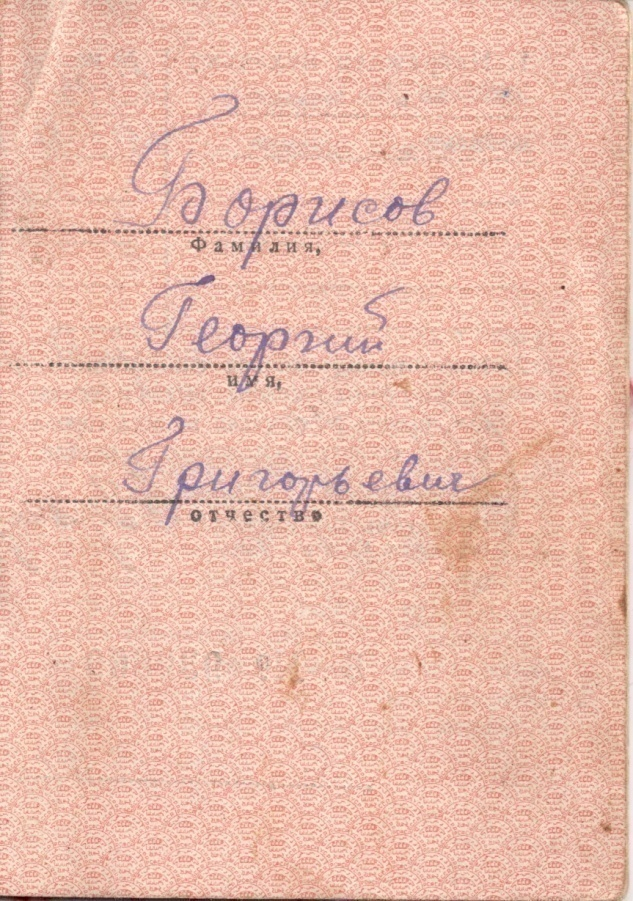 Борисов
Фамилия,
Георгий
имя,
Григорьевич
отчество